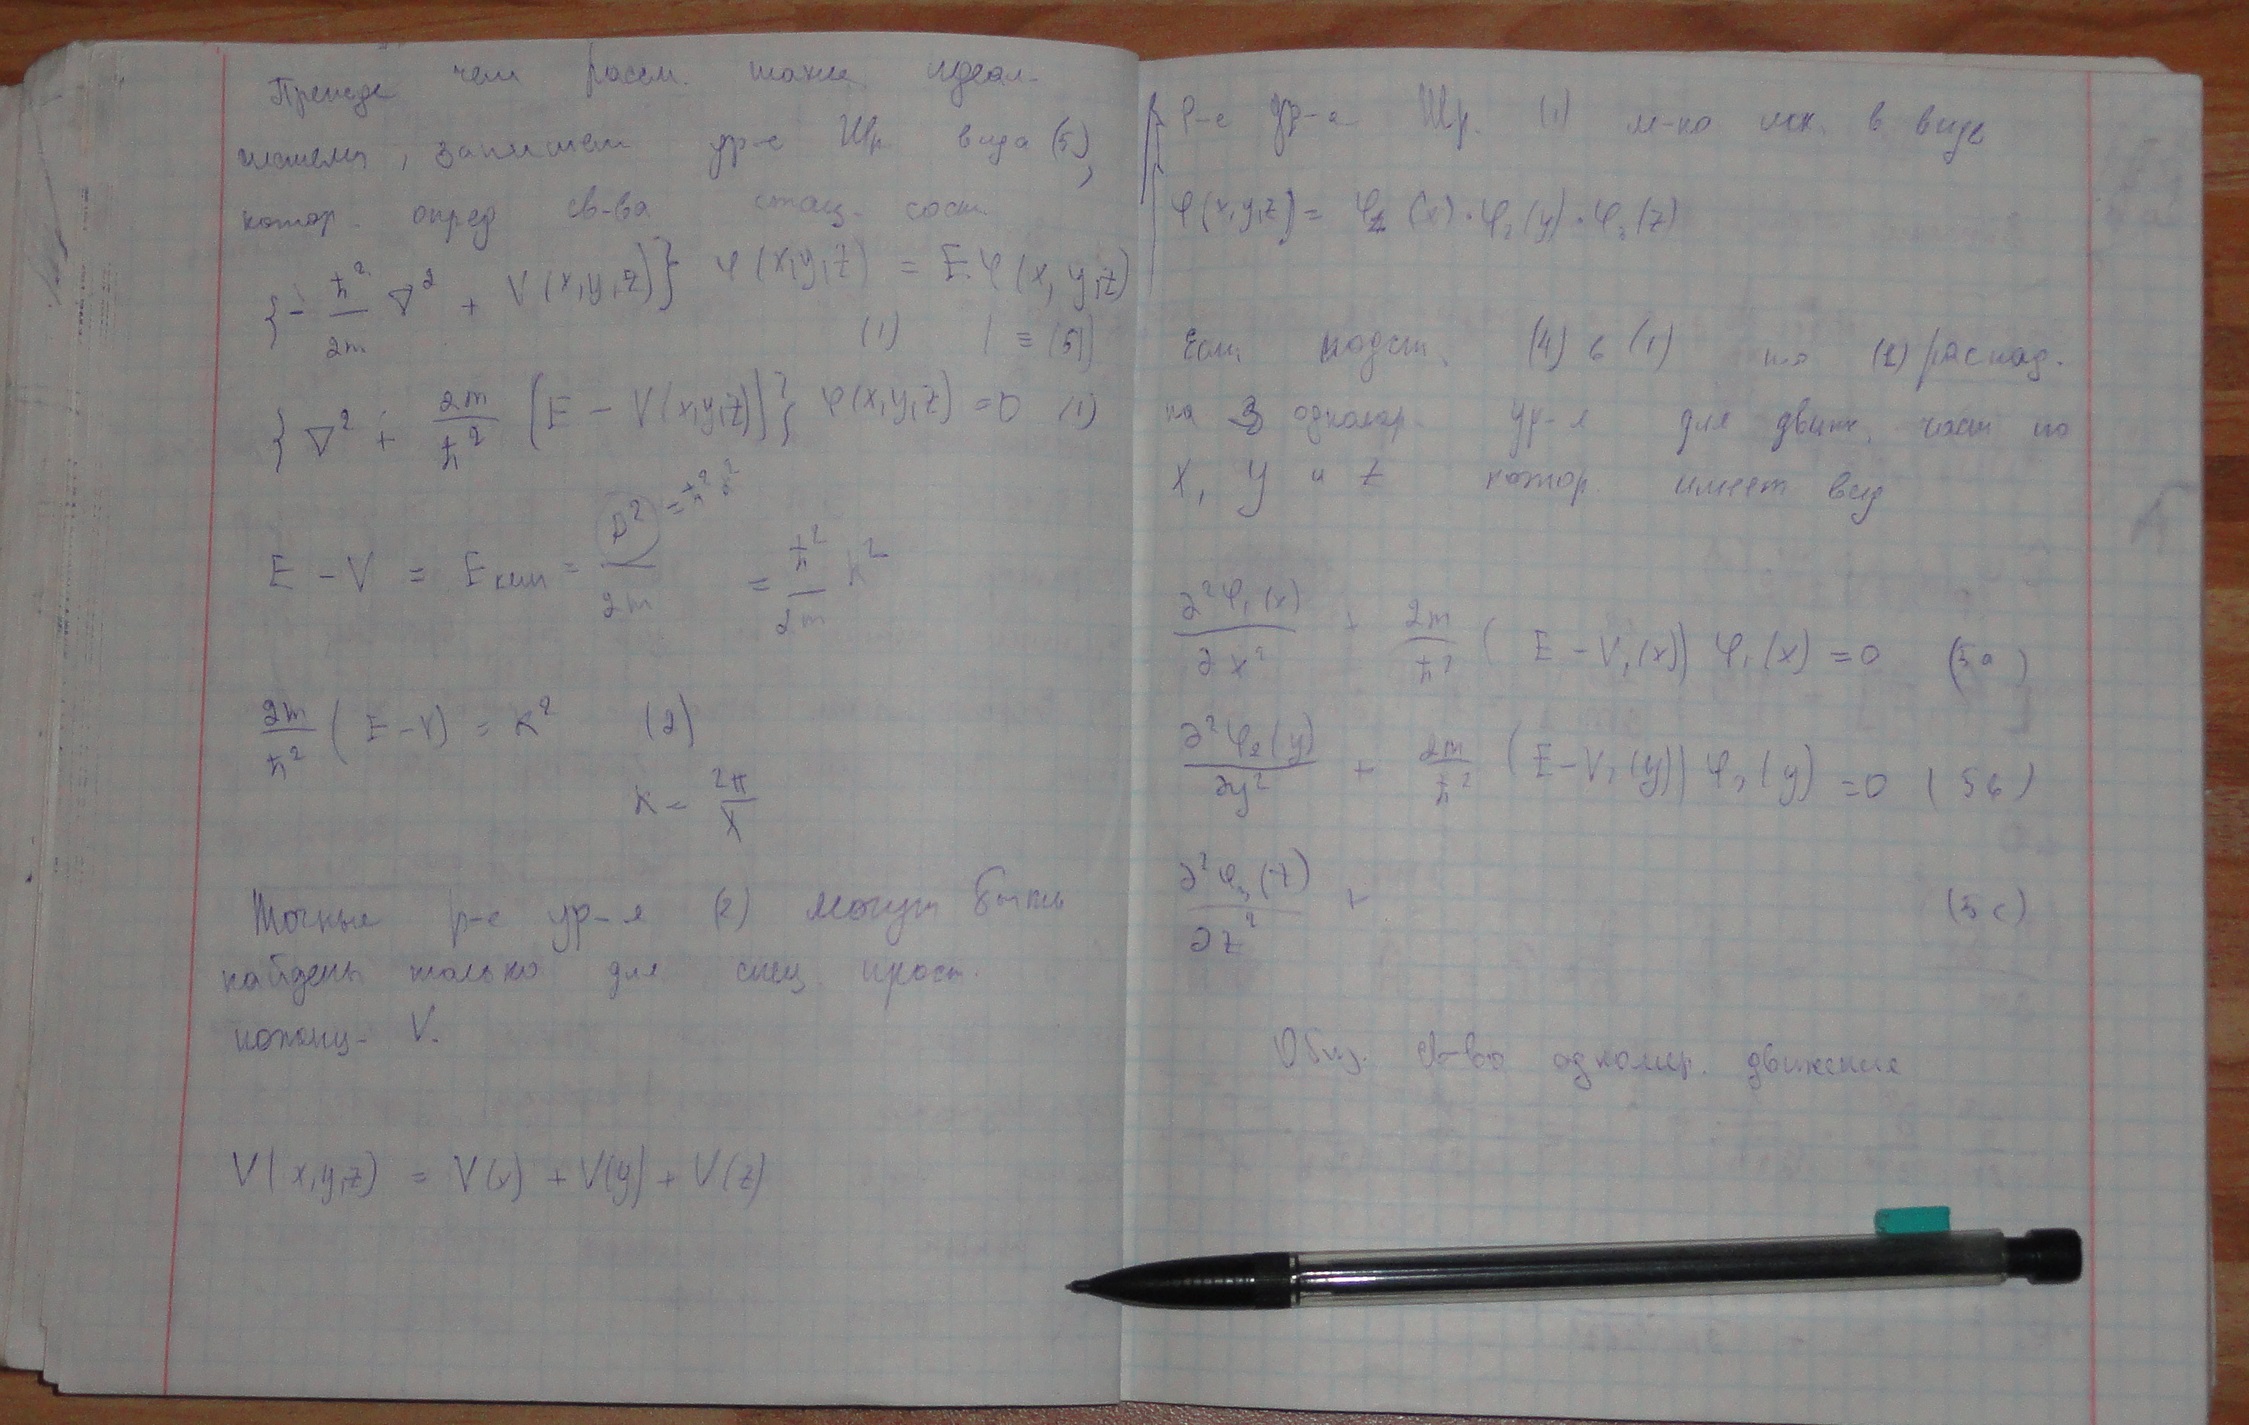 Прежде чем рассм. такие идеал.
системы, запишем ур-е Шр вида (5),
котор. опред св-ва стац. сост.
{- ħ²/2m ∇² + V(x,y,z)} φ(x,y,z) = E φ(x,y,z)
(1) 1 ≡ (5)
{∇² + 2m/ħ² [E - V(x,y,z)]} φ(x,y,z) = 0 (1)
E - V = Eкин = p²/2m = ħ²/2m k²
= ħ² k²
2m/ħ² (E - V) = k² (2)
k = 2π/λ
Точные р-е ур-я (2) могут быть
найдены только для спец. прост.
потенц. V.
V(x,y,z) = V(x) + V(y) + V(z)
Р-е ур-я Шр. (1) м-но иск. в виде
φ(x,y,z) = φ₁(x)·φ₂(y)·φ₃(z)
Если подст. (4) в (1) то (1) распад.
на 3 одномер. ур-я для движ. част по
x, y и z котор. имеет вид
∂²φ₁(x)/∂x² + 2m/ħ² (E - V₁(x)) φ₁(x) = 0 (5a)
∂²φ₂(y)/∂y² + 2m/ħ² (E - V₂(y)) φ₂(y) = 0 (5б)
∂²φ₃(z)/∂z² + (5c)
Общ. св-ва одномер. движения